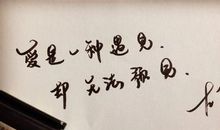 爱是一种遇见.
却无法预见.